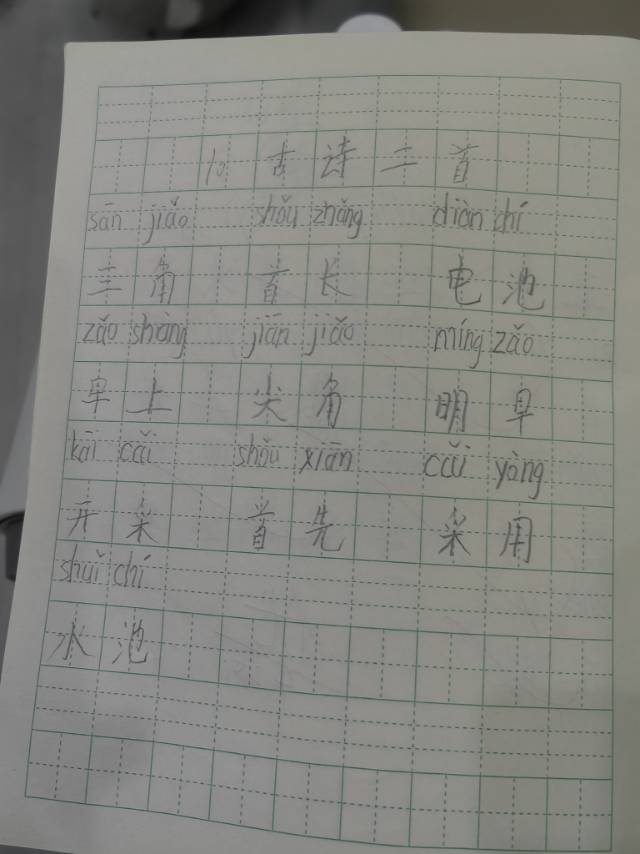 10 古诗二首
sān jiǎo shǒu zhǎng diàn chí
三角 首长 电池
zǎo shàng jiān jiǎo míng zǎo
早上 尖角 明早
kāi cǎi shǒu xiān cǎi yòng
开采 首先 采用
shuǐ chí
水池